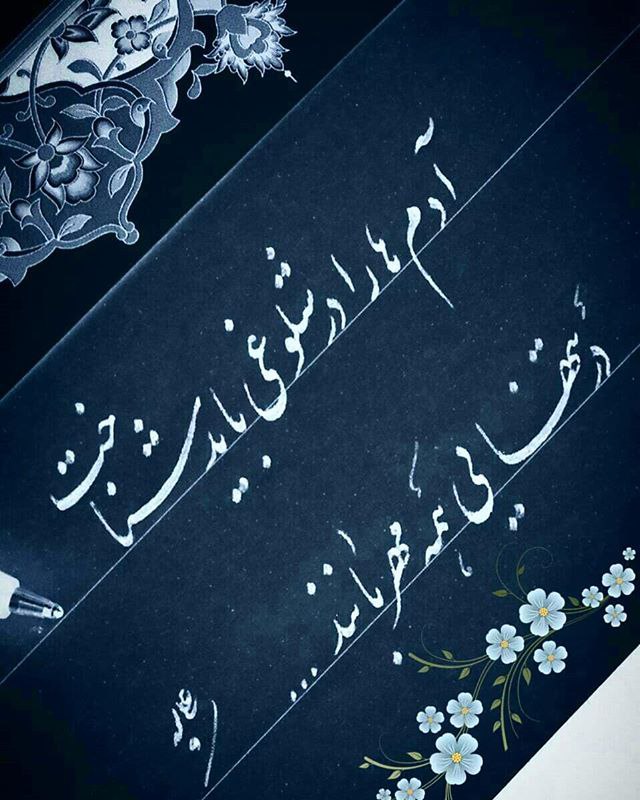 آدم ها را در شلوغی باید شناخت
در تنهایی همه مهربانند ...